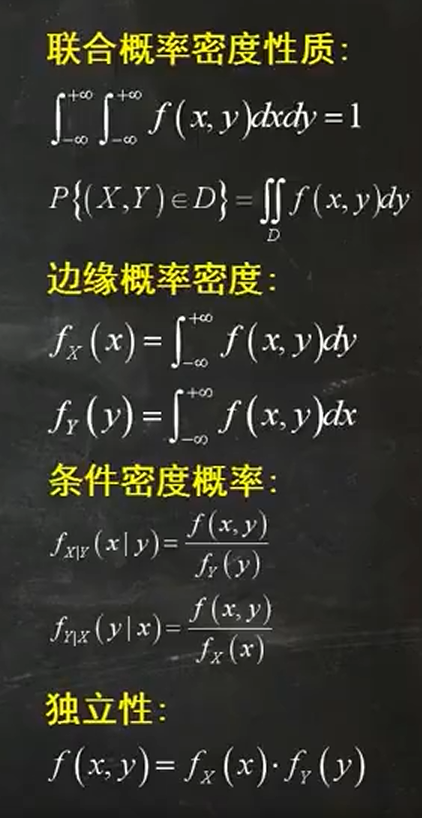 联合概率密度性质:
∫_{-∞}^{+∞} ∫_{-∞}^{+∞} f(x,y)dxdy=1
P{(X,Y)∈D}=∬_D f(x,y)dy
边缘概率密度:
f_X(x)=∫_{-∞}^{+∞} f(x,y)dy
f_Y(y)=∫_{-∞}^{+∞} f(x,y)dx
条件密度概率:
f_{X|Y}(x|y)=\frac{f(x,y)}{f_Y(y)}
f_{Y|X}(y|x)=\frac{f(x,y)}{f_X(x)}
独立性:
f(x,y)=f_X(x)·f_Y(y)